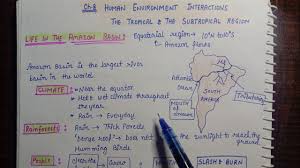 Ch 8 HUMAN ENVIRONMENT INTERACTIONS
THE TROPICAL & THE SUBTROPICAL REGION
LIFE IN THE AMAZON BASIN: Equatorial region → 10°N 10°S
↳ Amazon flows
Amazon Basin is the largest river
basin in the world
Atlantic
Ocean
SOUTH
AMERICA
MOUTH
OF
CLIMATE: → Near the equator
→ Hot & wet climate throughout
the year
→ Rain → Everyday
Rainforests: Rain → Thick Forests
"Dense roof" → Does not the sunlight to reach the
ground
Humming Birds
People
MEN
SLASH & BURN